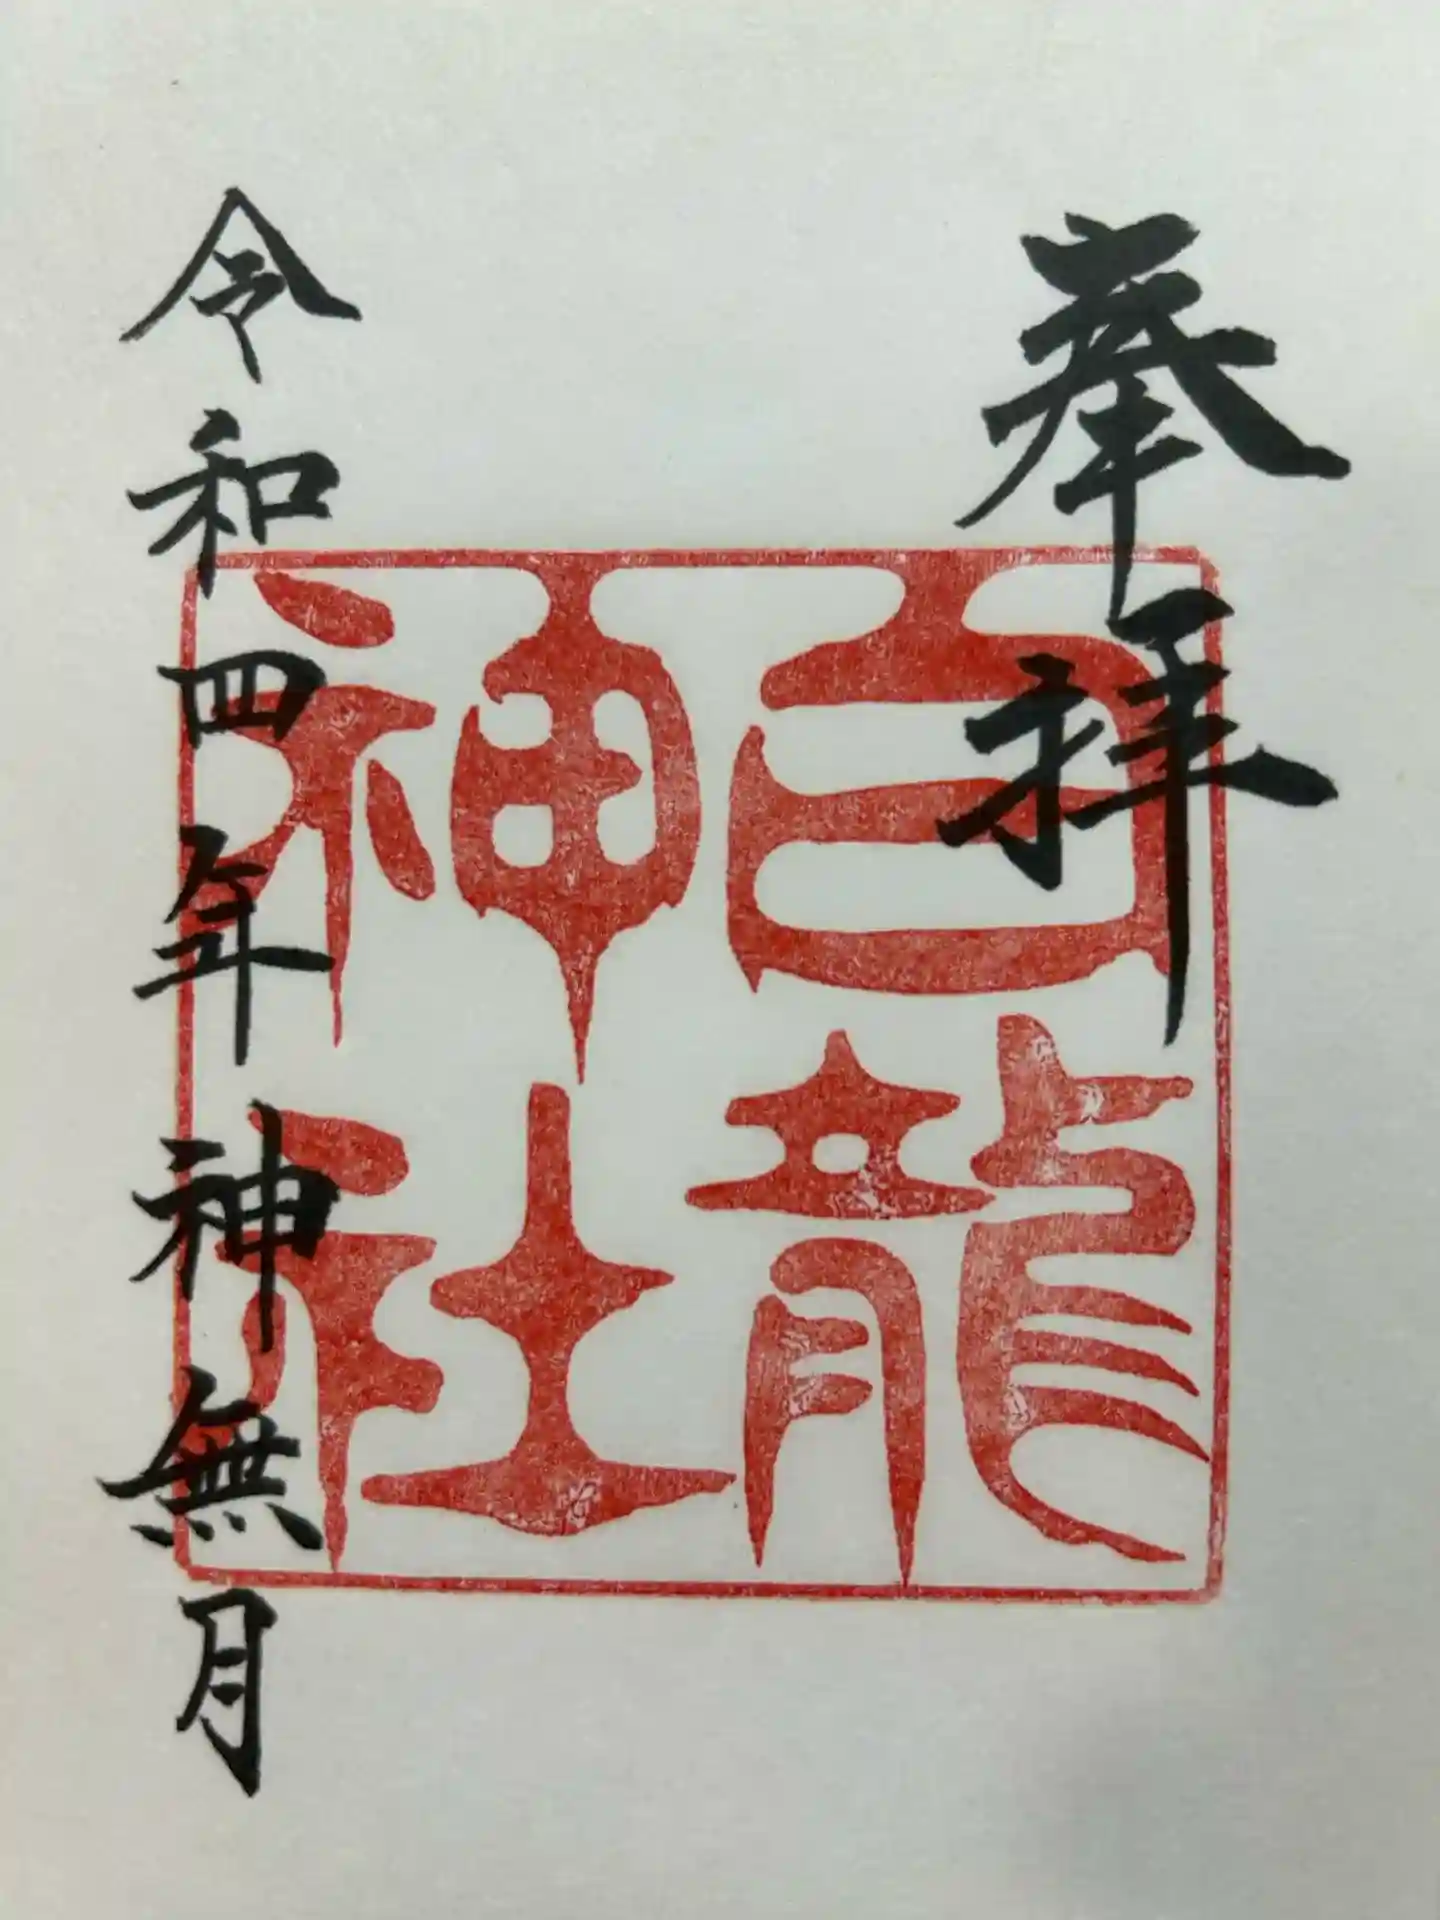 奉拝
白龍
神社
令和四年神無月